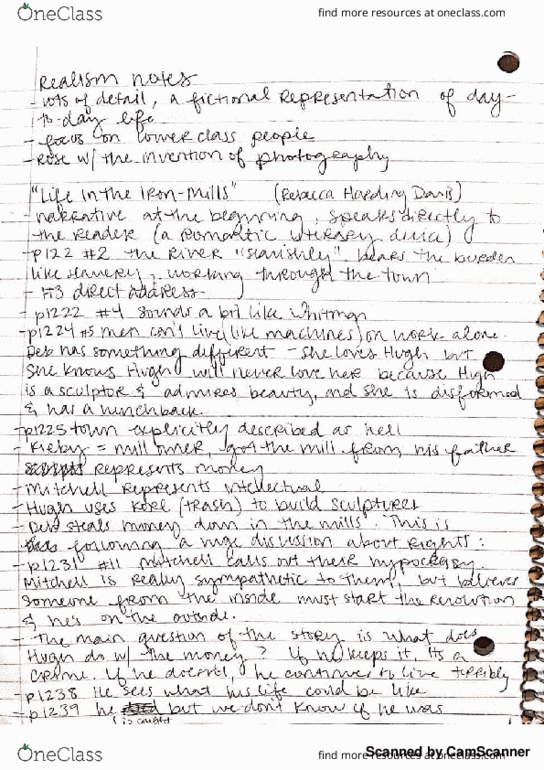 OneClass
find more resources at oneclass.com
Realism notes
- lots of detail, a fictional representation of day-
to-day life
- focus on lower class people
- rose w/ the invention of photography
"Life in the Iron-Mills" (Rebecca Harding Davis)
- narrative at the beginning, speaks directly to
the reader (a Romantic literary device)
- p122 #2 the River "slavishly" bears the burden
like slavery, working through the town
- #3 direct address
- p1222 #4 sounds a bit like Whitman
- p1224 #5 men can't live (like machines) on work alone.
Deb has something different - she loves Hugh but
she knows Hugh will never love her because Hugh
is a sculptor & admires beauty, and she is disformed
& has a hunchback.
- p1225 town explicitly described as hell
- Kirby = mill owner, got the mill from his father
represents money
- Mitchell represents intellectual
- Hugh uses Korl (trash) to build sculptures
- Deb steals money down in the mills. This is
following a huge discussion about Rights:
- p1231 #11 Mitchell calls out their hypocrisy.
Mitchell is really sympathetic to them, but believes
someone from the inside must start the revolution
& he's on the outside.
- The main question of the story is what does
Hugh do w/ the money? If he keeps it, its a
crime. If he doesn't, he continues to live terribly
- p1238 He sees what his life could be like
- p1239 he but we don't know if he was
is caught
OneClass
find more resources at oneclass.com
Scanned by CamScanner